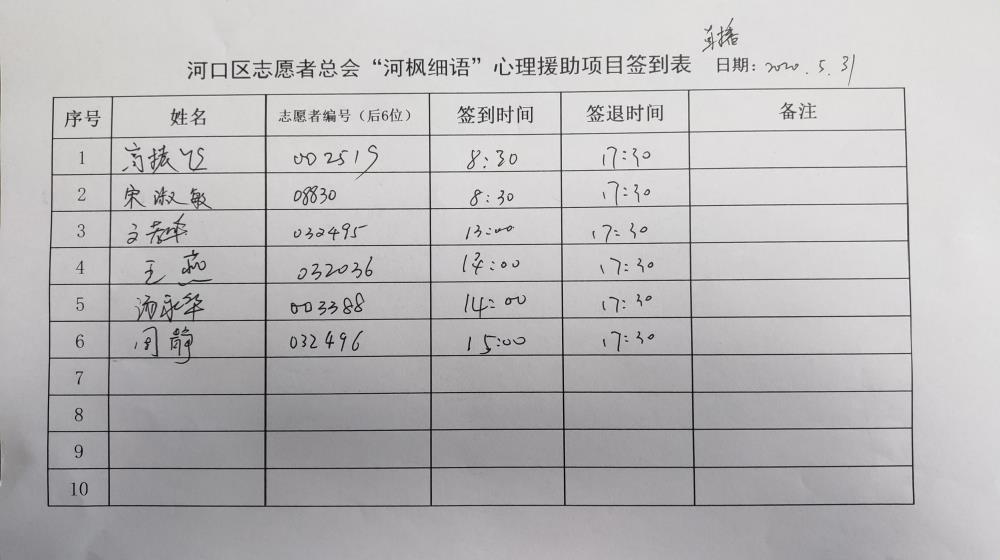 直播
河口区志愿者总会“河枫细语”心理援助项目签到表 日期：2020.5.31
序号 姓名 志愿者编号（后6位） 签到时间 签退时间 备注
1 高振飞 002519 8:30 17:30
2 宋淑敏 08830 8:30 17:30
3 文春华 032495 13:00 17:30
4 王燕 032036 14:00 17:30
5 汤永华 003388 14:00 17:30
6 周静 032496 15:00 17:30
7
8
9
10